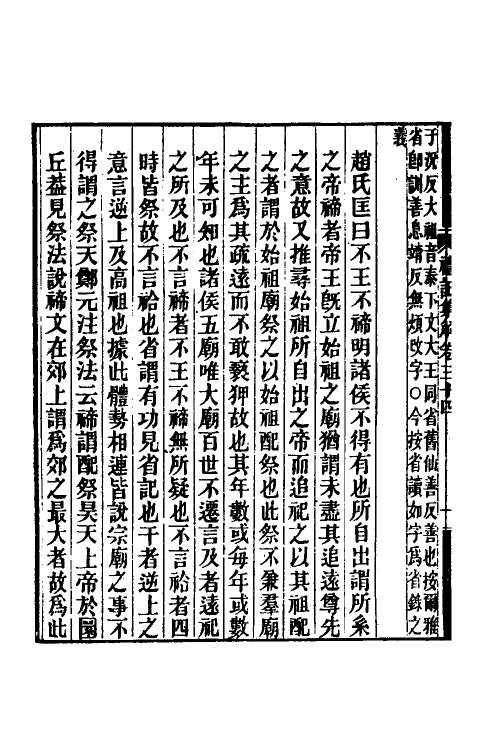 于況反大祖音泰下文大王同省舊仙善反善也按爾雅
省卽訓善息靖反無煩改字○今按省讀如字爲省錄之
義
趙氏匡曰不王不禘明諸侯不得有也所自出謂所系
之帝禘者帝王旣立始祖之廟猶謂未盡其追遠尊先
之意故又推尋始祖所自出之帝而追祀之以其祖配
之者謂於始祖廟祭之以始祖配祭也此祭不兼羣廟
之主爲其疏遠而不敢褻狎故也其年數或每年或數
年未可知也諸侯五廟唯大廟百世不遷言及者遠祀
之所及也不言禘者不王不禘無所疑也不言祫者四
時皆祭故不言祫也省謂有功見省記也干者逆上之
意言逆上及高祖也據此體勢相連皆說宗廟之事不
得謂之祭天鄭元注祭法云禘謂配祭昊天上帝於圜
丘葢見祭法說禘文在郊上謂爲郊之最大者故爲此
禮記集解卷三十四